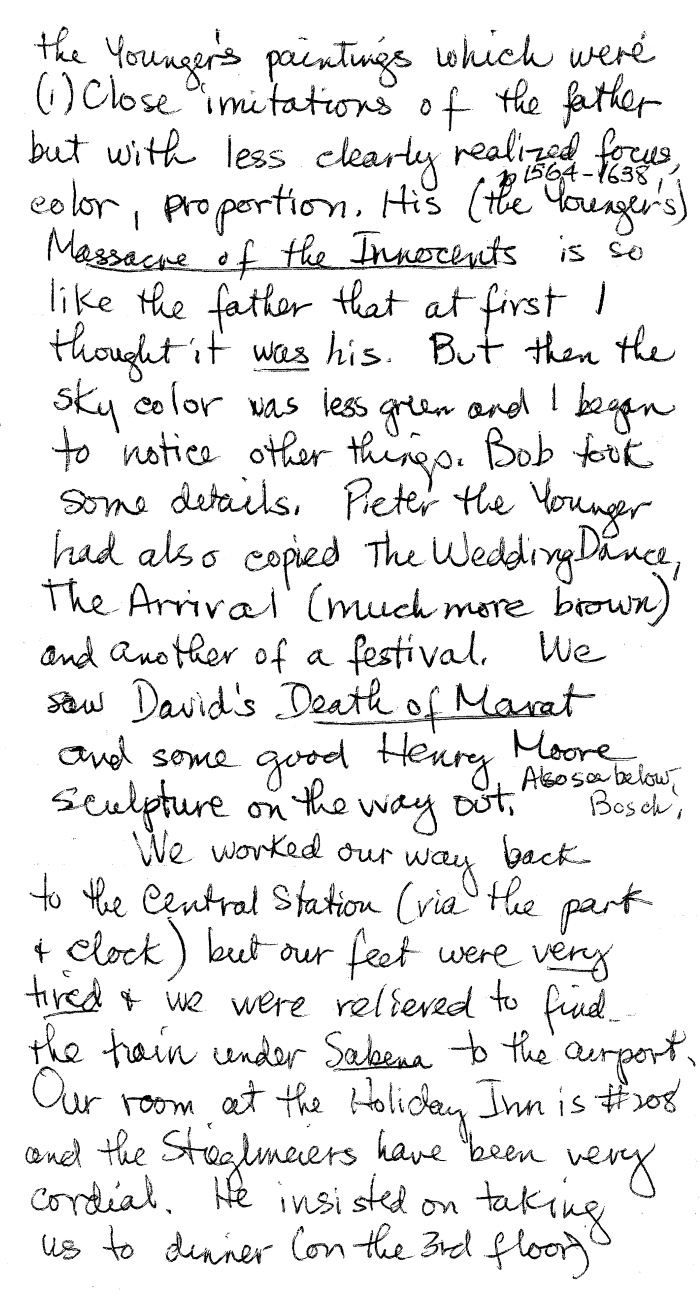 the Younger's paintings which were
(1) Close imitations of the father
but with less clearly realized focus,
p 1564-1638,
color, proportion. His (the Younger's)
Massacre of the Innocents is so
like the father that at first I
thought it was his. But then the
sky color was less green and I began
to notice other things. Bob took
some details. Pieter the Younger
had also copied The Wedding Dance,
The Arrival (much more brown)
and another of a festival. We
saw David's Death of Marat
and some good Henry Moore
Also saw below,
sculpture on the way out. Bosch,
We worked our way back
to the Central Station (via the park
+ clock) but our feet were very
tired + we were relieved to find
the train under Sabena to the airport.
Our room at the Holiday Inn is #208
and the Stieglmeiers have been very
cordial. He insisted on taking
us to dinner (on the 3rd floor)